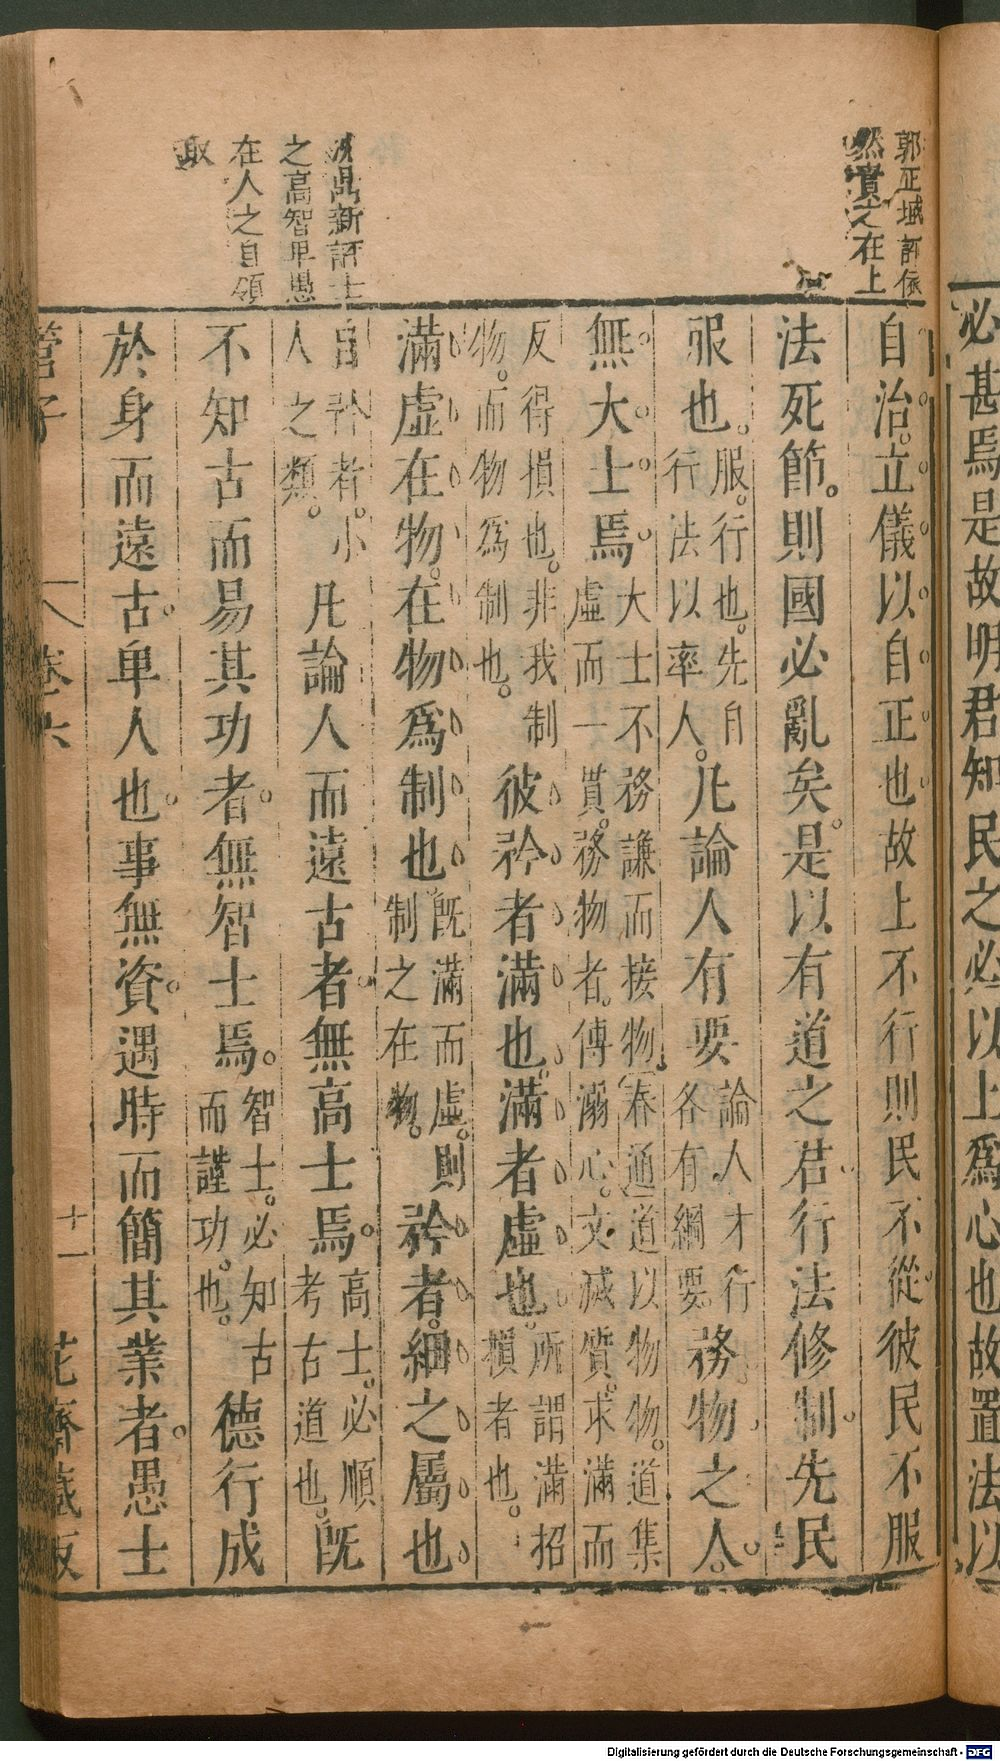 必甚焉是故明君知民之必以上爲心也故置法以
郭正域評係
然責之在上
自治。立儀以自正也故上不行則民不從。彼民不服
法死節。則國必亂矣。是以有道之君行法修制。先民
服也。服。行也。先自行法以率人。凡論人有要論人才行各有綱要。務物之人。
無大士焉。大士不務謙而接物。春通道以物物。道集虛而一貫。務物者。傳溺心。文滅質。求滿而
反得損也。非我制物。而物爲制也。彼矜者滿也。滿者虛也。所謂滿招損者也。
滿虛在物。在物爲制也。既滿而虛。則制之在物。矜者。細之屬也。
自矜者。小人之類。凡論人而遠古者。無高士焉。高士。必順考古道也。既
不知古而易其功者。無智士焉。智士。必知古而謹功也。德行成
於身而遠古。卑人也。事無資。遇時而簡其業者。愚士
沈鼎新評士
之高智卑愚
在人之自領
取
管子 卷六 十一 花齋藏板
Digitalisierung gefördert durch die Deutsche Forschungsgemeinschaft - DFG